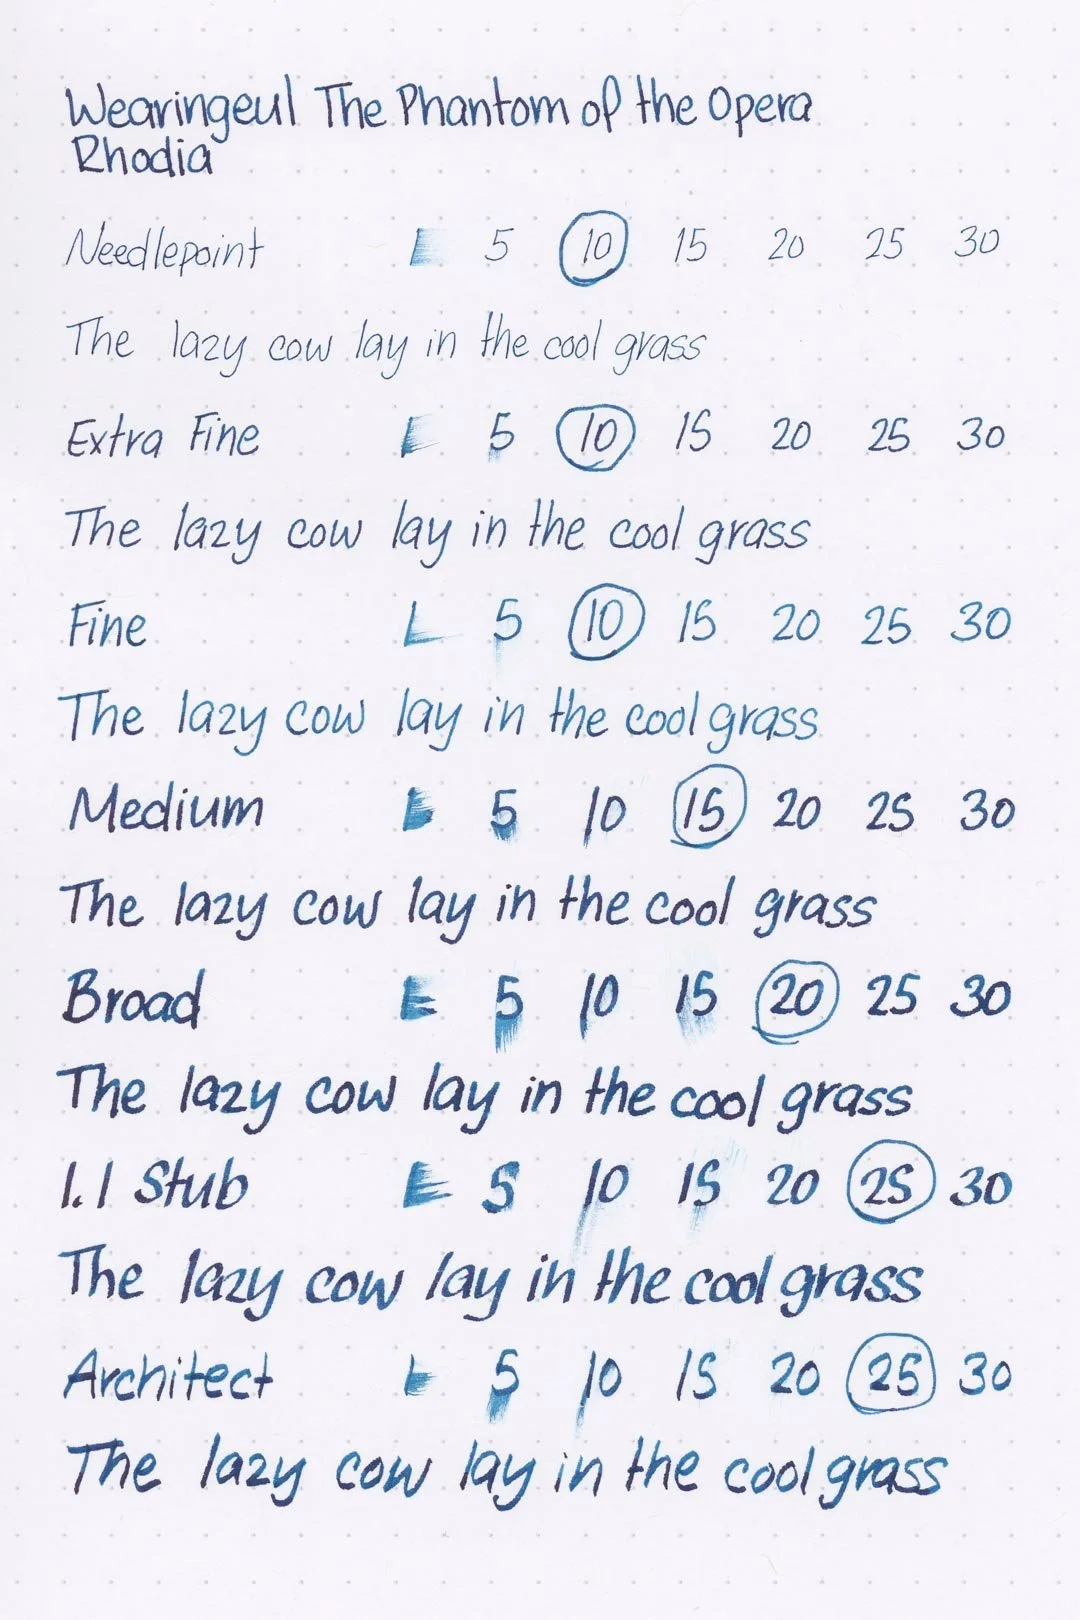 Wearingeul The Phantom of the Opera
Rhodia
Needlepoint L 5 10 15 20 25 30
The lazy cow lay in the cool grass
Extra Fine L 5 10 15 20 25 30
The lazy cow lay in the cool grass
Fine L 5 10 15 20 25 30
The lazy cow lay in the cool grass
Medium L 5 10 15 20 25 30
The lazy cow lay in the cool grass
Broad L 5 10 15 20 25 30
The lazy cow lay in the cool grass
1.1 Stub L 5 10 15 20 25 30
The lazy cow lay in the cool grass
Architect L 5 10 15 20 25 30
The lazy cow lay in the cool grass